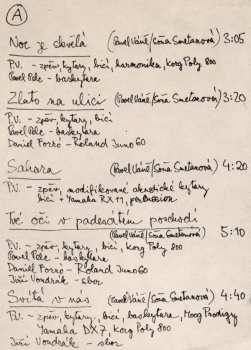 A
Noc je skvělá (Pavel Váně/Soňa Smetanová) 3:05
P.V. - zpěv, kytary, bicí, harmonika, Korg Poly 800
Pavel Pelc - baskytara
Zlato na ulici (Pavel Váně/Soňa Smetanová) 3:20
P.V. - zpěv, kytary, bicí
Pavel Pelc - baskytara
Daniel Forró - Roland Juno 60
Sahara (Pavel Váně/Soňa Smetanová) 4:20
P.V. - zpěv, modifikované akustické kytary
bicí + Yamaha RX11, percussion
Tvé oči v padesátém poschodí
(Pavel Váně/Soňa Smetanová) 5:10
P.V. - zpěv, kytary, bicí, Korg Poly 800
Pavel Pelc - baskytara
Daniel Forró - Roland Juno 60
Jiří Vondrák - sbor
Svítá v nás (Pavel Váně/Soňa Smetanová) 4:40
P.V. - zpěv, kytary, bicí, baskytara, Moog Prodigy
Yamaha DX7, Korg Poly 800
Jiří Vondrák - sbor